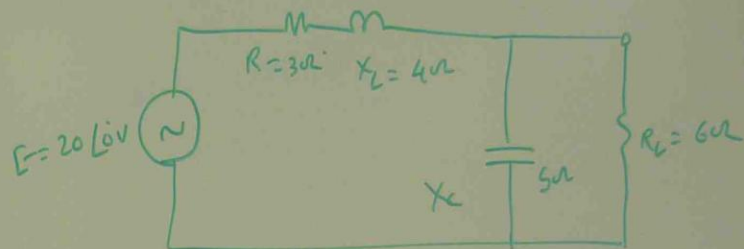 R=3Ω X_L=4Ω
E=20∠0V
~
X_C 5Ω
R_L=6Ω